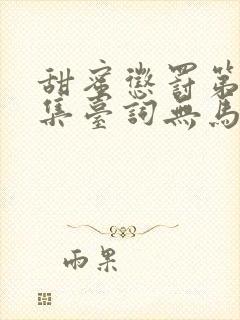 甜蜜懲罰第
集臺詞無馬
雨果